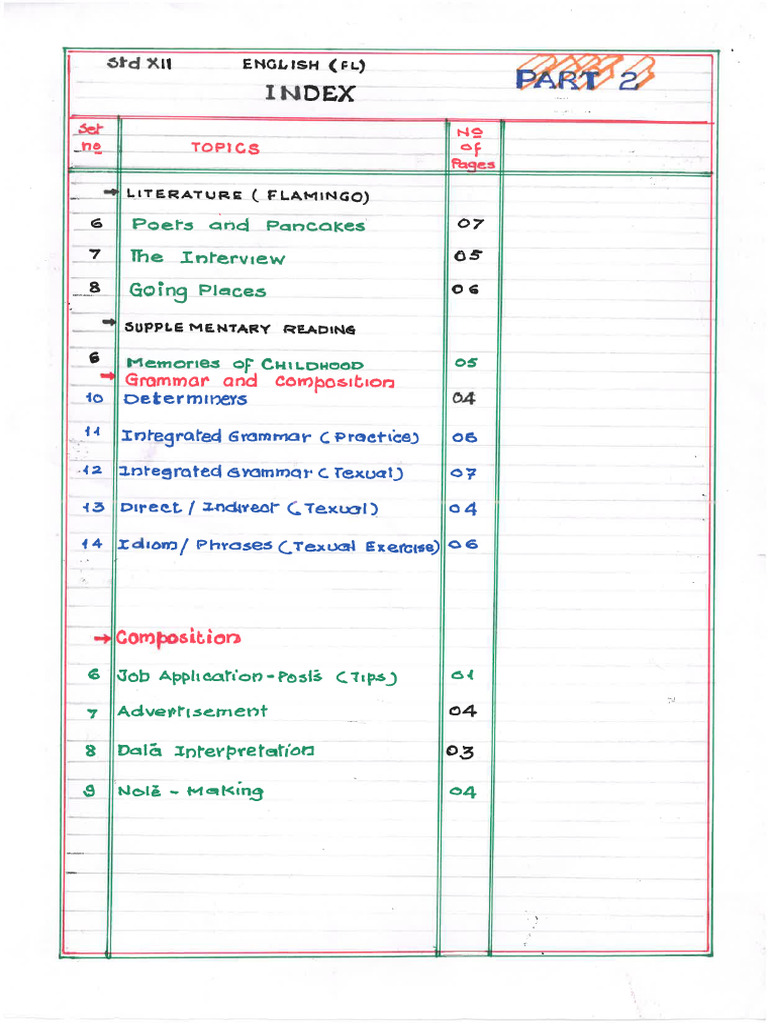 Std XII ENGLISH (FL) PART 2
INDEX
Set no TOPICS No of Pages
→ LITERATURE ( FLAMINGO)
6 Poets and Pancakes 07
7 The Interview 05
8 Going Places 06
→ SUPPLEMENTARY READING
6 Memories of CHILDHOOD 05
→ Grammar and composition
10 Determiners 04
11 Integrated Grammar ( Practice) 06
12 Integrated Grammar ( Texual) 07
13 Direct / Indirect ( Texual) 04
14 Idiom/ Phrases ( Texual Exercise) 06
→ Composition
6 Job Application - Posts (Tips) 01
7 Advertisement 04
8 Data Interpretation 03
9 Note - Making 04